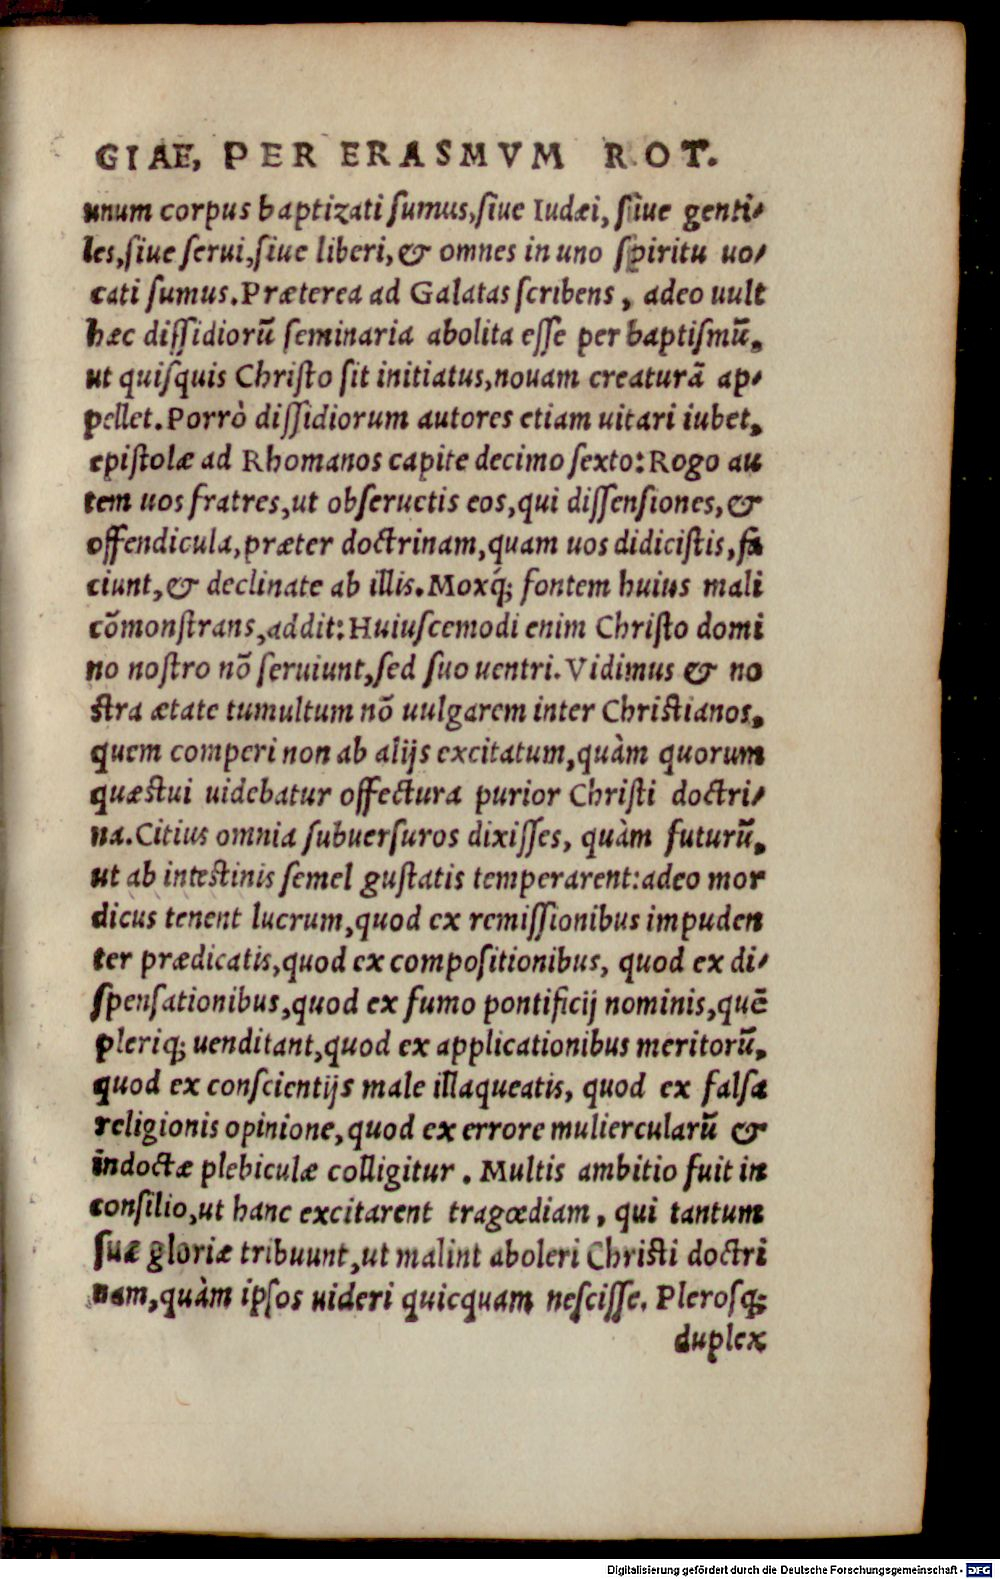 GIAE, PER ERASMVM ROT.
unum corpus baptizati ſumus,ſiue Iudæi, ſiue genti-
les,ſiue ſerui,ſiue liberi,& omnes in uno ſpiritu uo-
cati ſumus.Præterea ad Galatas ſcribens, adeo uult
hæc diſſidiorũ ſeminaria abolita eſſe per baptiſmũ,
ut quiſquis Chriſto ſit initiatus,nouam creaturã ap-
pellet.Porrò diſſidiorum autores etiam uitari iubet,
epiſtolæ ad Rhomanos capite decimo ſexto:Rogo au
tem uos fratres,ut obſeruetis eos,qui diſſenſiones,&
offendicula,præter doctrinam,quam uos didiciſtis,fa
ciunt,& declinate ab illis.Moxq́; fontem huius mali
cõmonſtrans,addit:Huiuſcemodi enim Chriſto domi
no noſtro nõ ſeruiunt,ſed ſuo uentri.Vidimus & no
ſtra ætate tumultum nõ uulgarem inter Chriſtianos,
quem comperi non ab alijs excitatum,quàm quorum
quæſtui uidebatur offectura purior Chriſti doctri-
na.Citius omnia ſubuerſuros dixiſſes, quàm futurũ,
ut ab inteſtinis ſemel guſtatis temperarent:adeo mor
dicus tenent lucrum,quod ex remiſſionibus impuden
ter prædicatis,quod ex compoſitionibus, quod ex di-
ſpenſationibus,quod ex fumo pontificij nominis,quẽ
pleriq; uenditant,quod ex applicationibus meritorũ,
quod ex conſcientijs male illaqueatis, quod ex falſa
religionis opinione,quod ex errore muliercularũ &
indoctæ plebiculæ colligitur. Multis ambitio fuit in
conſilio,ut hanc excitarent tragœdiam, qui tantum
ſuæ gloriæ tribuunt,ut malint aboleri Chriſti doctri
nam,quàm ipſos uideri quicquam neſciſſe. Pleroſq;
duplex
Digitalisierung gefördert durch die Deutsche Forschungsgemeinschaft - DFG